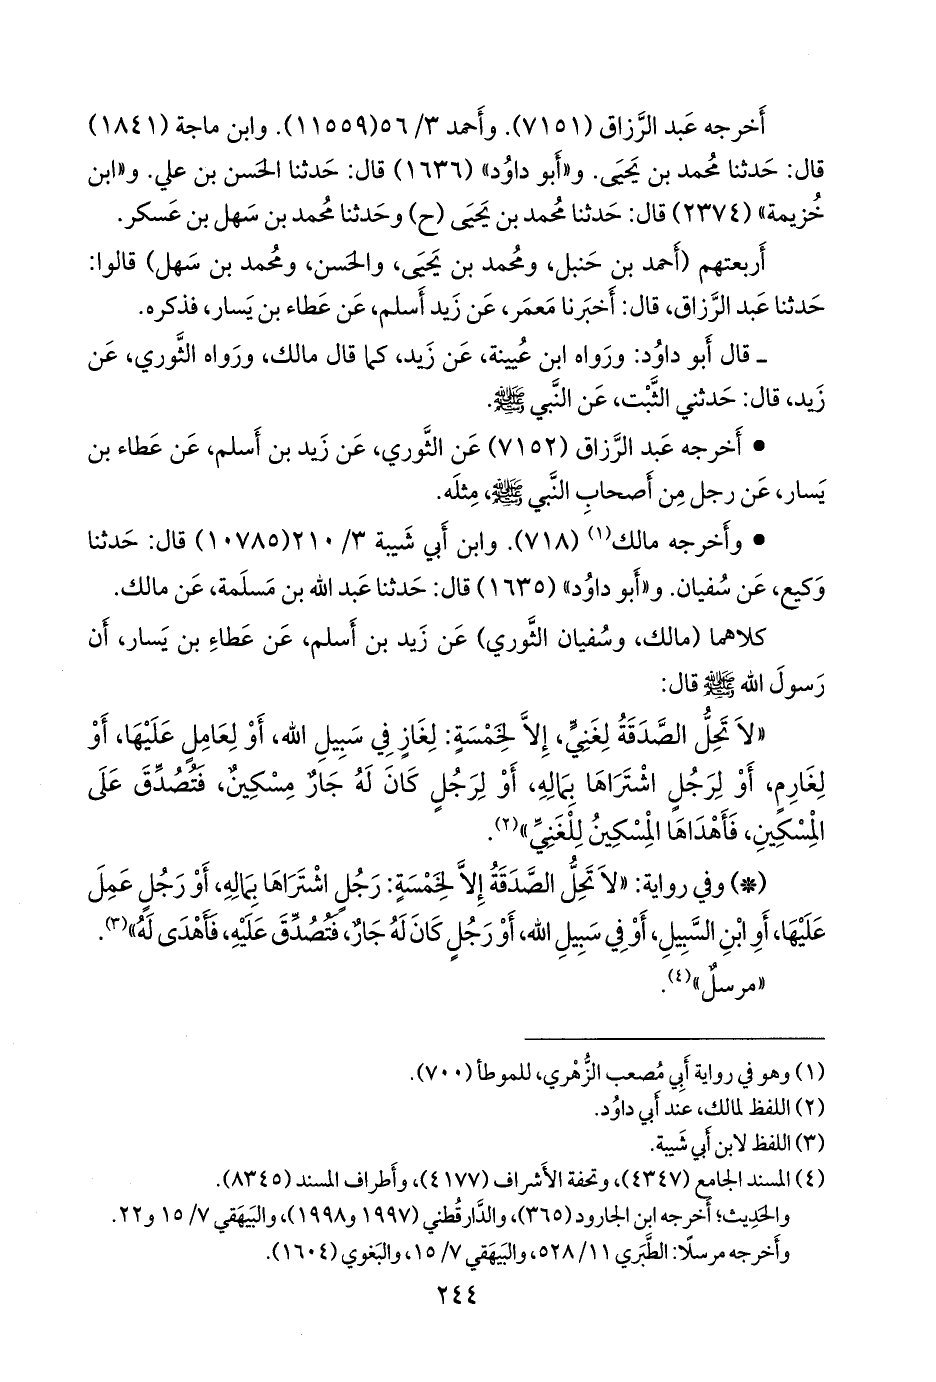 أَخرجه عَبد الرَّزاق (٧١٥١). وأَحمد ٣/ ٥٦(١١٥٥٩). وابن ماجة (١٨٤١)
قال: حَدثنا مُحمد بن يَحيَى. و«أَبو داوُد» (١٦٣٦) قال: حَدثنا الحَسن بن علي. و«ابن
خُزيمة» (٢٣٧٤) قال: حَدثنا مُحمد بن يَحيَى (ح) وحَدثنا مُحمد بن سَهل بن عَسكر.
أَربعتهم (أَحمد بن حَنبل، ومُحمد بن يَحيَى، والحَسن، ومُحمد بن سَهل) قالوا:
حَدثنا عَبد الرَّزاق، قال: أَخبَرنا مَعمَر، عَن زَيد أَسلم، عَن عَطاء بن يَسار، فذكره.
ـ قال أَبو داوُد: ورَواه ابن عُيينة، عَن زَيد، كما قال مالك، ورَواه الثَّوري، عَن
زَيد، قال: حَدثني الثَّبْت، عَن النَّبي ﷺ.
• أَخرجه عَبد الرَّزاق (٧١٥٢) عَن الثَّوري، عَن زَيد بن أَسلم، عَن عَطاء بن
يَسار، عَن رجل مِن أَصحابِ النَّبي ﷺ، مِثلَه.
• وأَخرجه مالك(١) (٧١٨). وابن أَبي شَيبة ٣/ ٢١٠(١٠٧٨٥) قال: حَدثنا
وَكيع، عَن سُفيان. و«أَبو داوُد» (١٦٣٥) قال: حَدثنا عَبد الله بن مَسلَمة، عَن مالك.
كلاهما (مالك، وسُفيان الثَّوري) عَن زَيد بن أَسلم، عَن عَطاءِ بن يَسار، أَن
رَسولَ الله ﷺ قال:
«لاَ تَحِلُّ الصَّدَقَةُ لِغَنِيٍّ، إِلاَّ لِخَمْسَةٍ: لِغَازٍ فِي سَبِيلِ الله، أَوْ لِعَامِلٍ عَلَيْهَا، أَوْ
لِغَارِمٍ، أَوْ لِرَجُلٍ اشْتَرَاهَا بِمَالِهِ، أَوْ لِرَجُلٍ كَانَ لَهُ جَارٌ مِسْكِينٌ، فَتُصُدِّقَ عَلَى
الْمِسْكِينِ، فَأَهْدَاهَا الْمِسْكِينُ لِلْغَنِيِّ»(٢).
(*) وفي رواية: «لاَ تَحِلُّ الصَّدَقَةُ إِلاَّ لِخَمْسَةٍ: رَجُلٍ اشْتَرَاهَا بِمَالِهِ، أَوْ رَجُلٍ عَمِلَ
عَلَيْهَا، أَوِ ابْنِ السَّبِيلِ، أَوْ فِي سَبِيلِ الله، أَوْ رَجُلٍ كَانَ لَهُ جَارٌ، فَتُصُدِّقَ عَلَيْهِ، فَأَهْدَى لَهُ»(٣).
«مرسلٌ»(٤).
(١) وهو في رواية أَبِي مُصعب الزُّهْري، للموطأ (٧٠٠).
(٢) اللفظ لمالك، عند أَبي داوُد.
(٣) اللفظ لابن أَبي شَيبة.
(٤) المسند الجامع (٤٣٤٧)، وتحفة الأَشراف (٤١٧٧)، وأَطراف المسند (٨٣٤٥).
والحَدِيث؛ أَخرجه ابن الجارود (٣٦٥)، والدَّارقُطني (١٩٩٧ و١٩٩٨)، والبَيهَقي ٧/ ١٥ و٢٢.
وأَخرجه مرسلًا: الطَّبَري ١١/ ٥٢٨، والبَيهَقي ٧/ ١٥، والبَغوي (١٦٠٤).
٢٤٤